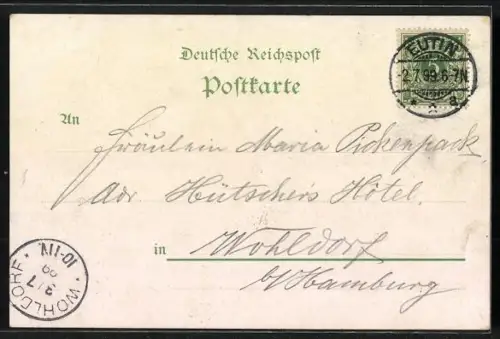 Deutsche Reichspost
Postkarte
EUTIN
2.7.99.6-7N.
* a
An
Fräulein Maria Pickenpack
Adr Hütscher's Hôtel.
in Wohldorf
b/Hamburg
WOHLDORF
3/7
99
10-11V.